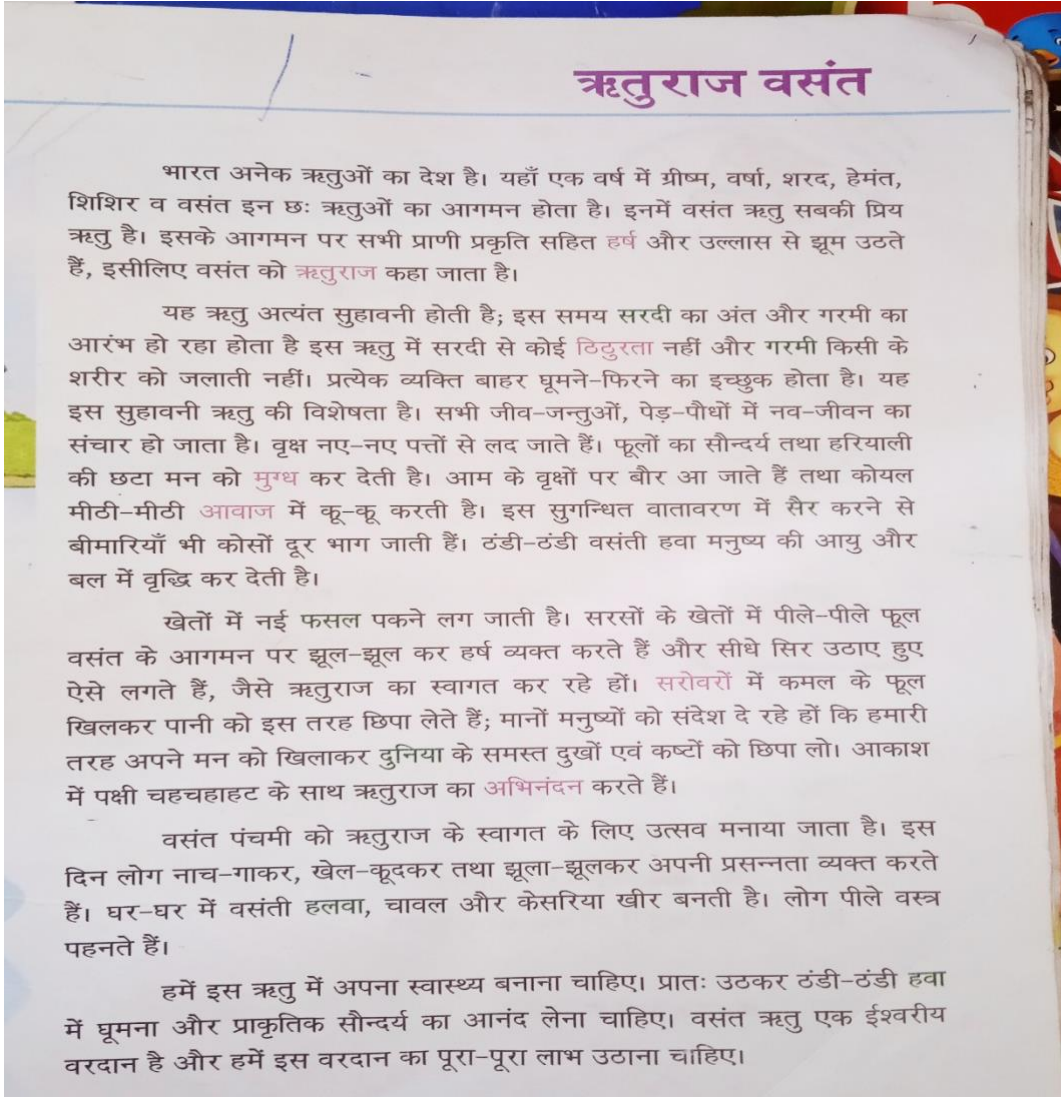 ऋतुराज वसंत
भारत अनेक ऋतुओं का देश है। यहाँ एक वर्ष में ग्रीष्म, वर्षा, शरद, हेमंत,
शिशिर व वसंत इन छः ऋतुओं का आगमन होता है। इनमें वसंत ऋतु सबकी प्रिय
ऋतु है। इसके आगमन पर सभी प्राणी प्रकृति सहित हर्ष और उल्लास से झूम उठते
हैं, इसीलिए वसंत को ऋतुराज कहा जाता है।
यह ऋतु अत्यंत सुहावनी होती है; इस समय सरदी का अंत और गरमी का
आरंभ हो रहा होता है इस ऋतु में सरदी से कोई ठिठुरता नहीं और गरमी किसी के
शरीर को जलाती नहीं। प्रत्येक व्यक्ति बाहर घूमने-फिरने का इच्छुक होता है। यह
इस सुहावनी ऋतु की विशेषता है। सभी जीव-जन्तुओं, पेड़-पौधों में नव-जीवन का
संचार हो जाता है। वृक्ष नए-नए पत्तों से लद जाते हैं। फूलों का सौन्दर्य तथा हरियाली
की छटा मन को मुग्ध कर देती है। आम के वृक्षों पर बौर आ जाते हैं तथा कोयल
मीठी-मीठी आवाज में कू-कू करती है। इस सुगन्धित वातावरण में सैर करने से
बीमारियाँ भी कोसों दूर भाग जाती हैं। ठंडी-ठंडी वसंती हवा मनुष्य की आयु और
बल में वृद्धि कर देती है।
खेतों में नई फसल पकने लग जाती है। सरसों के खेतों में पीले-पीले फूल
वसंत के आगमन पर झूल-झूल कर हर्ष व्यक्त करते हैं और सीधे सिर उठाए हुए
ऐसे लगते हैं, जैसे ऋतुराज का स्वागत कर रहे हों। सरोवरों में कमल के फूल
खिलकर पानी को इस तरह छिपा लेते हैं; मानों मनुष्यों को संदेश दे रहे हों कि हमारी
तरह अपने मन को खिलाकर दुनिया के समस्त दुखों एवं कष्टों को छिपा लो। आकाश
में पक्षी चहचहाहट के साथ ऋतुराज का अभिनंदन करते हैं।
वसंत पंचमी को ऋतुराज के स्वागत के लिए उत्सव मनाया जाता है। इस
दिन लोग नाच-गाकर, खेल-कूदकर तथा झूला-झूलकर अपनी प्रसन्नता व्यक्त करते
हैं। घर-घर में वसंती हलवा, चावल और केसरिया खीर बनती है। लोग पीले वस्त्र
पहनते हैं।
हमें इस ऋतु में अपना स्वास्थ्य बनाना चाहिए। प्रातः उठकर ठंडी-ठंडी हवा
में घूमना और प्राकृतिक सौन्दर्य का आनंद लेना चाहिए। वसंत ऋतु एक ईश्वरीय
वरदान है और हमें इस वरदान का पूरा-पूरा लाभ उठाना चाहिए।